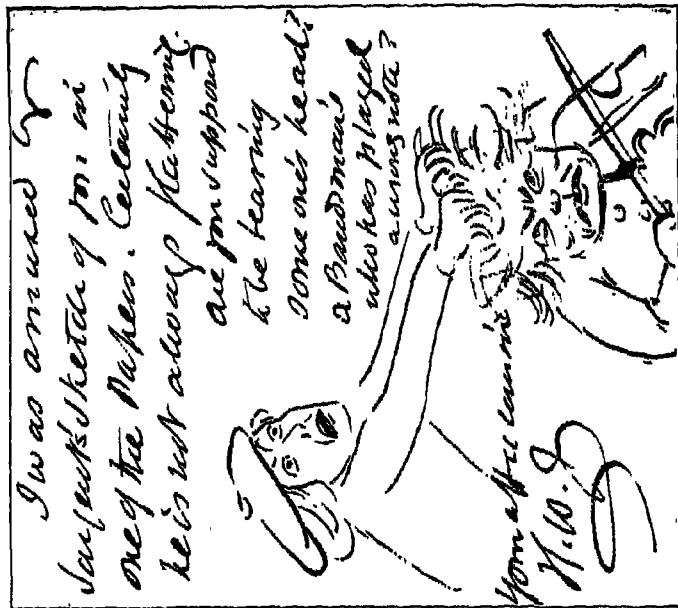 I was amused by
Sargent's sketch of you in
one of the Papers. Certainly
he is not always flattering.
are you supposed
to be tearing
some one's head?
a Bandsman's
who has played
a wrong note?
Your affec cousin
H. W. J